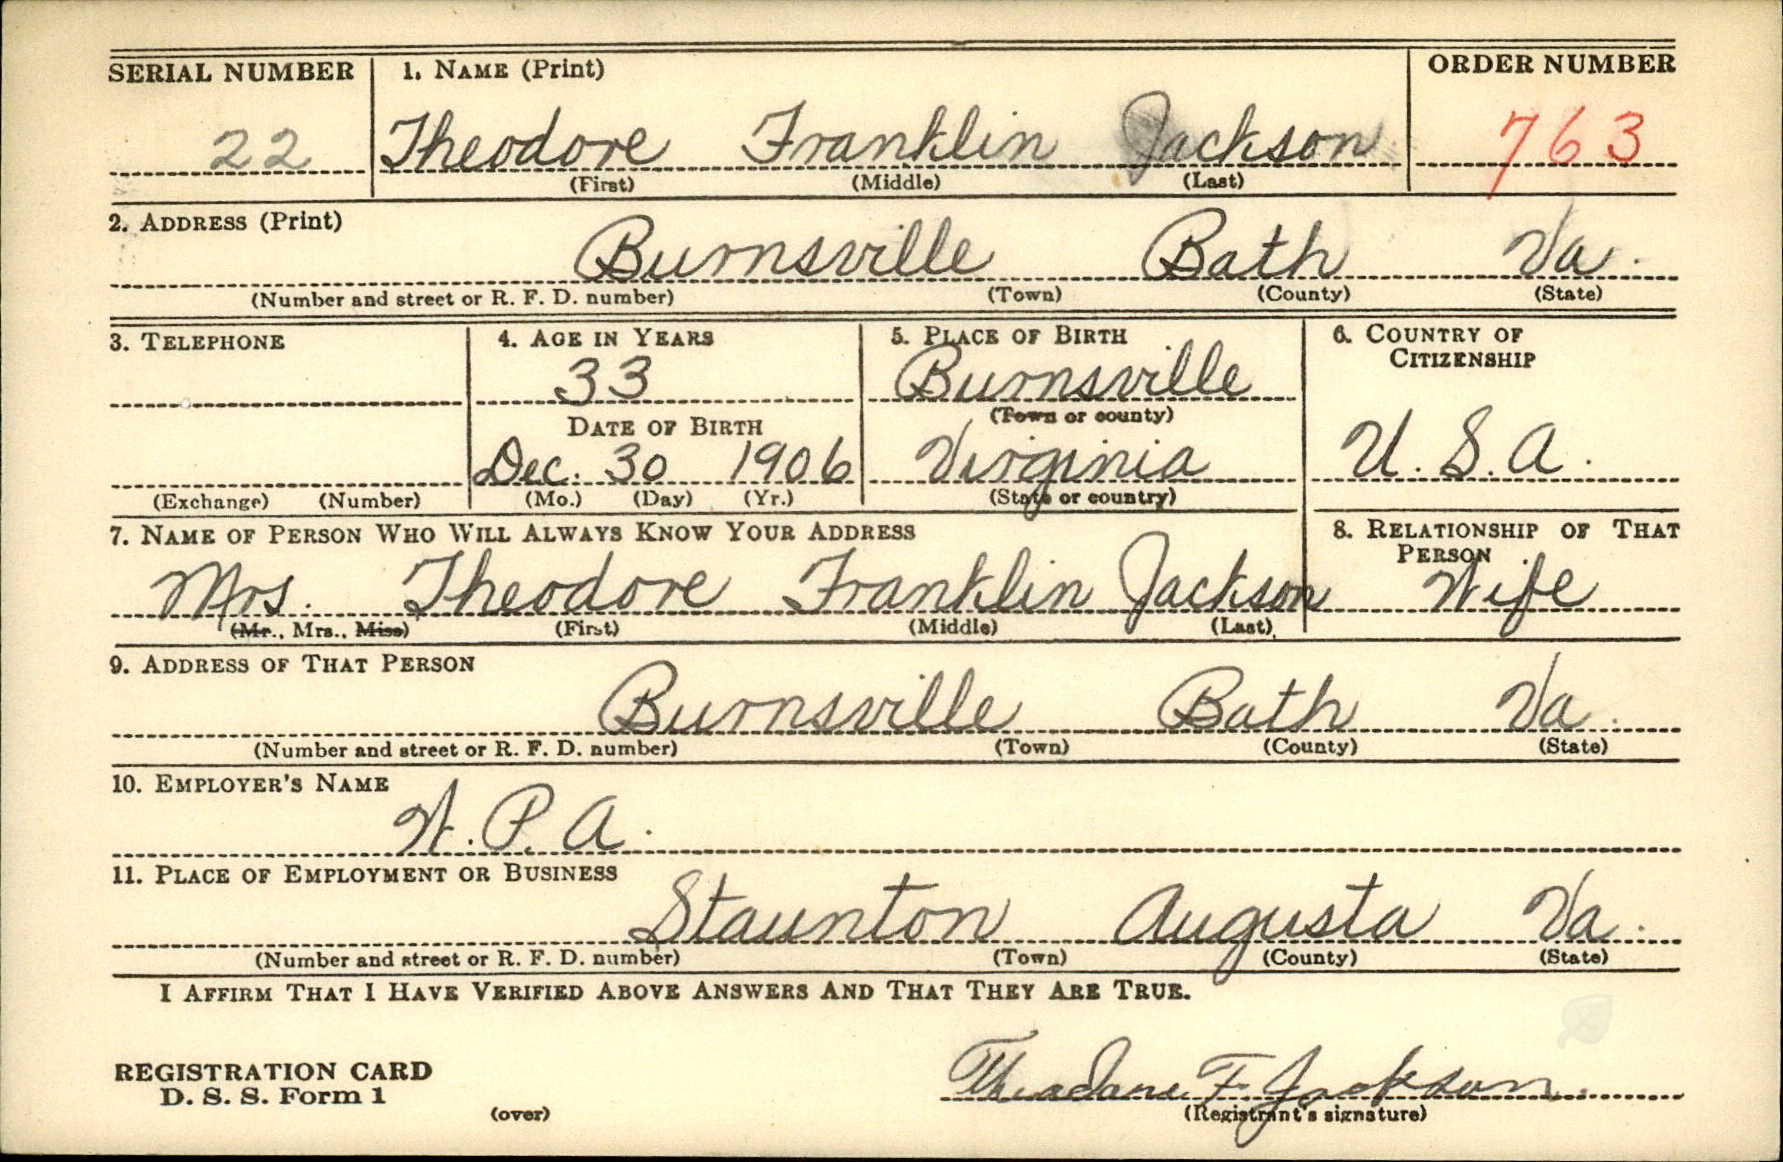 SERIAL NUMBER 1. NAME (Print) ORDER NUMBER
22 Theodore Franklin Jackson 763
(First) (Middle) (Last)
2. ADDRESS (Print)
Burnsville Bath Va.
(Number and street or R. F. D. number) (Town) (County) (State)
3. TELEPHONE 4. AGE IN YEARS 5. PLACE OF BIRTH 6. COUNTRY OF
CITIZENSHIP
33 Burnsville
(Town or county)
DATE OF BIRTH
Dec. 30 1906 Virginia U. S. A.
(Exchange) (Number) (Mo.) (Day) (Yr.) (State or country)
7. NAME OF PERSON WHO WILL ALWAYS KNOW YOUR ADDRESS 8. RELATIONSHIP OF THAT
PERSON
Mrs. Theodore Franklin Jackson Wife
(Mr., Mrs., Miss) (First) (Middle) (Last)
9. ADDRESS OF THAT PERSON
Burnsville Bath Va.
(Number and street or R. F. D. number) (Town) (County) (State)
10. EMPLOYER'S NAME
W. P. A.
11. PLACE OF EMPLOYMENT OR BUSINESS
Staunton Augusta Va.
(Number and street or R. F. D. number) (Town) (County) (State)
I AFFIRM THAT I HAVE VERIFIED ABOVE ANSWERS AND THAT THEY ARE TRUE.
REGISTRATION CARD
D. S. S. Form 1
Theadore F. Jackson
(over) (Registrant's signature)